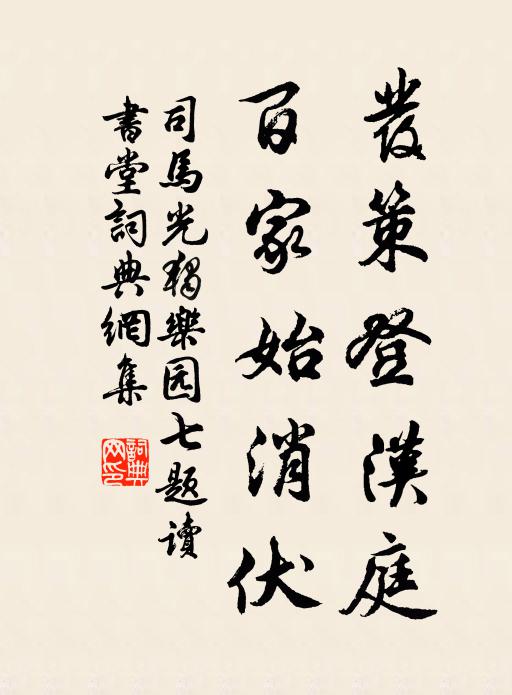 發策登漢庭
百家始消伏
司馬光獨樂园七題讀
書堂詞典網集
詞典網印